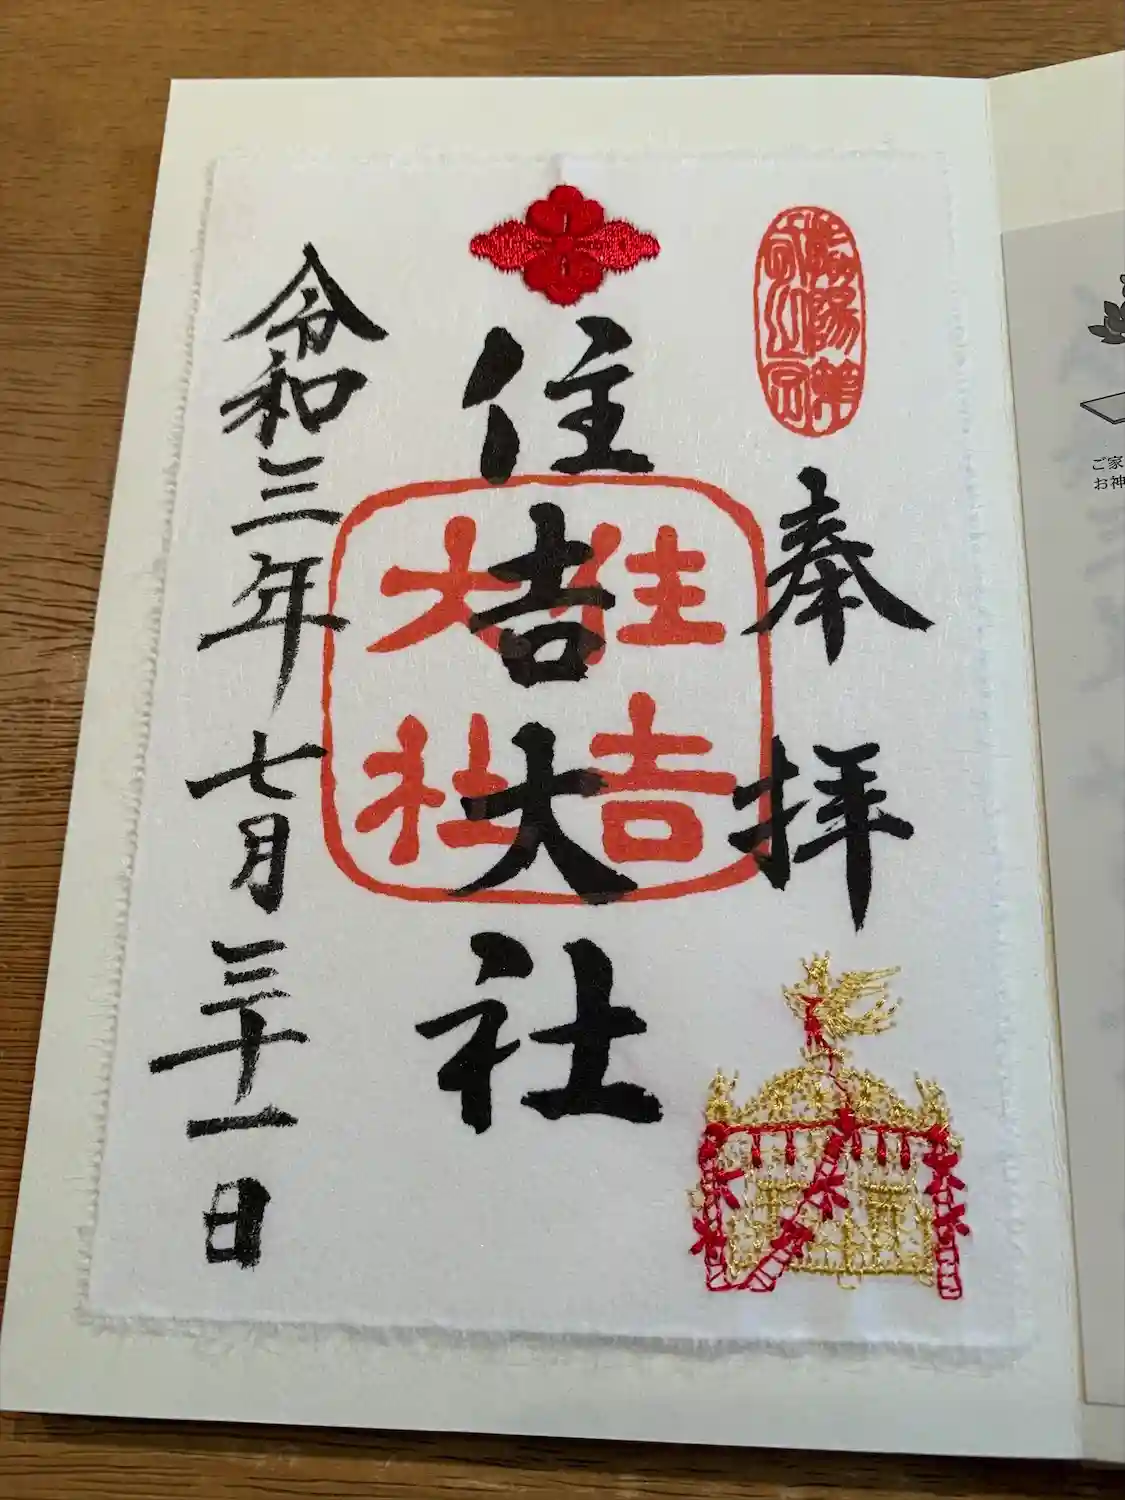 奉拝
住吉大社
住吉
大社
令和三年七月三十一日
ご家
お神